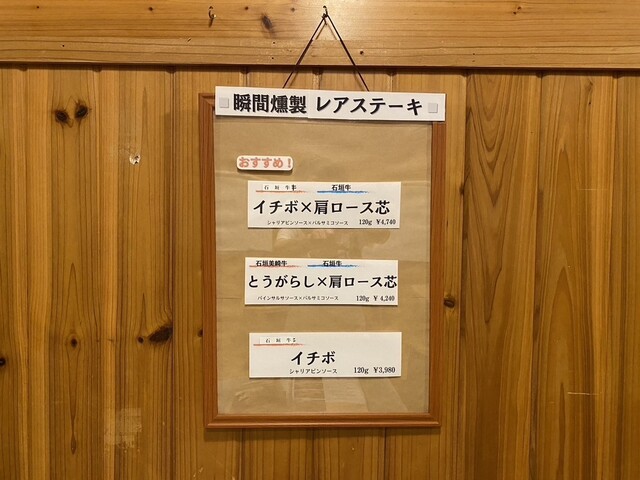 瞬間燻製 レアステーキ
おすすめ！
石垣牛 石垣牛
イチボ×肩ロース芯
シャリアピンソース×バルサミコソース 120g ¥4,740
石垣美崎牛 石垣牛
とうがらし×肩ロース芯
パインサルサソース×バルサミコソース 120g ¥4,240
石垣牛
イチボ
シャリアピンソース 120g ¥3,980